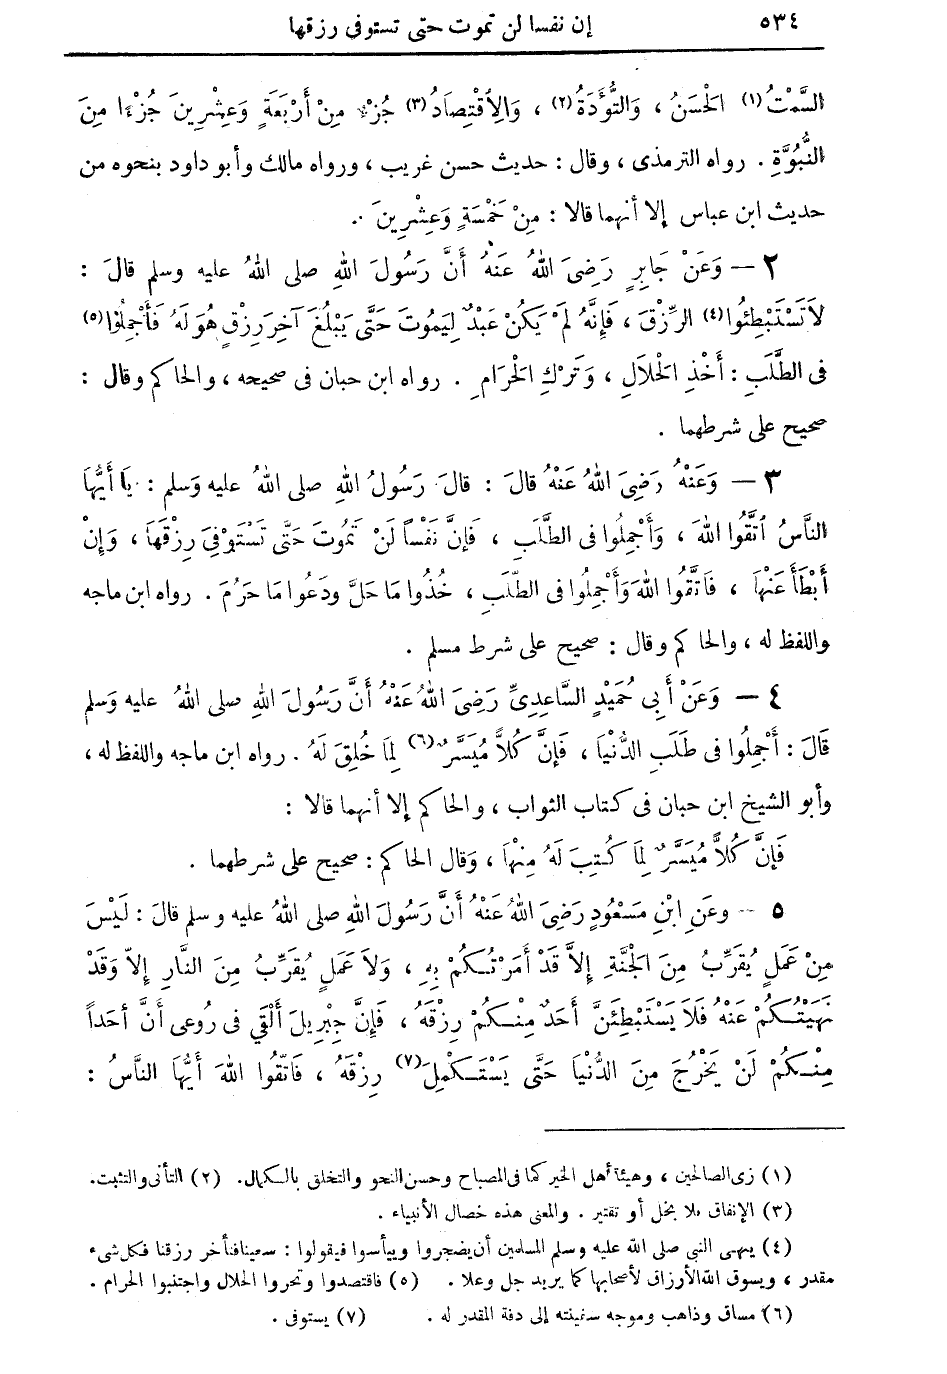 ٥٣٤ إن نفسا لن تموت حتى تستوفى رزقها
السَّمْتُ (١) الْحَسَنُ ، وَالتُّؤَدَةُ (٢) ، وَالِاقْتِصَادُ (٣) جُزْءٌ مِنْ أَرْبَعَةٍ وَعِشْرِينَ جُزْءًا مِنَ
النُّبُوَّةِ . رواه الترمذى ، وقال : حديث حسن غريب ، ورواه مالك وأبو داود بنحوه من
حديث ابن عباس إلا أنهما قالا : مِنْ خَمْسَةٍ وَعِشْرِينَ .
٢ — وَعَنْ جَابِرٍ رَضِىَ اللهُ عَنْهُ أَنَّ رَسُولَ اللهِ صلى اللهُ عليه وسلم قالَ :
لاَ تَسْتَبْطِئُوا (٤) الرِّزْقَ ، فَإِنَّهُ لَمْ يَكُنْ عَبْدٌ لِيَمُوتَ حَتَّى يَبْلُغَ آخِرَ رِزْقٍ هُوَ لَهُ فَأَجْمِلُوا (٥)
فى الطَّلَبِ : أَخْذِ الْحَلاَلِ ، وَتَرْكِ الْحَرَامِ . رواه ابن حبان فى صحيحه ، والحاكم وقال :
صحيح على شرطهما .
٣ — وَعَنْهُ رَضِىَ اللهُ عَنْهُ قالَ : قالَ رَسُولُ اللهِ صلى اللهُ عليه وَسلم : يَا أَيُّهَا
النَّاسُ اتَّقُوا اللهَ ، وَأَجْمِلُوا فى الطَّلَبِ ، فَإِنَّ نَفْسًا لَنْ تَمُوتَ حَتَّى تَسْتَوْفِىَ رِزْقَهَا ، وَإِنْ
أَبْطَأَ عَنْهَا ، فَاتَّقُوا اللهَ وَأَجْمِلُوا فى الطَّلَبِ ، خُذُوا مَا حَلَّ وَدَعُوا مَا حَرُمَ . رواه ابن ماجه
واللفظ له ، والحاكم وقال : صحيح على شرط مسلم .
٤ — وَعَنْ أَبِى حُمَيْدٍ السَّاعِدِىِّ رَضِىَ اللهُ عَنْهُ أَنَّ رَسُولَ اللهِ صلى اللهُ عليه وَسلم
قَالَ : أَجْمِلُوا فى طَلَبِ الدُّنْيَا ، فَإِنَّ كُلاًّ مُيَسَّرٌ (٦) لِمَا خُلِقَ لَهُ . رواه ابن ماجه واللفظ له ،
وأبو الشيخ ابن حبان فى كتاب الثواب ، والحاكم إلا أنهما قالا :
فَإِنَّ كُلاًّ مُيَسَّرٌ لِمَا كُتِبَ لَهُ مِنْهَا ، وَقال الحاكم : صحيح على شرطهما .
٥ — وعَنِ ابْنِ مَسْعُودٍ رَضِىَ اللهُ عَنْهُ أَنَّ رَسُولَ اللهِ صلى اللهُ عليه وسلم قالَ : لَيْسَ
مِنْ عَمَلٍ يُقَرِّبُ مِنَ الْجَنَّةِ إِلاَّ قَدْ أَمَرْتُكُمْ بِهِ ، وَلاَ عَمَلٍ يُقَرِّبُ مِنَ النَّارِ إِلاّ وَقَدْ
نَهَيْتُكُمْ عَنْهُ فَلاَ يَسْتَبْطِئَنَّ أَحَدٌ مِنْكُمْ رِزْقَهُ ، فَإِنَّ جِبْرِيلَ أَلْقَى فى رُوعى أَنَّ أَحَداً
مِنْكُمْ لَنْ يَخْرُجَ مِنَ الدُّنْيَا حَتَّى يَسْتَكْمِلَ (٧) رِزْقَهُ ، فَاتَّقُوا اللهَ أَيُّهَا النَّاسُ :
(١) زى الصالحين ، وهيئة أهل الخير كما فى المصباح وحسن النحو والتخلق بالكمال . (٢) التأنى والتثبت .
(٣) الإنفاق بلا بخل أو تقتير . والمعنى هذه خصال الأنبياء .
(٤) ينهى النبى صلى الله عليه وسلم المسلمين أن يضجروا وييأسوا فيقولوا : سعينا فتأخر رزقنا فكل شىء
مقدر ، ويسوق الله الأرزاق لأصحابها كما يريد جل وعلا . (٥) فاقتصدوا وتحروا الحلال واجتنبوا الحرام .
(٦) مساق وذاهب وموجه سفينته إلى دفة المقدر له . (٧) يستوفى .